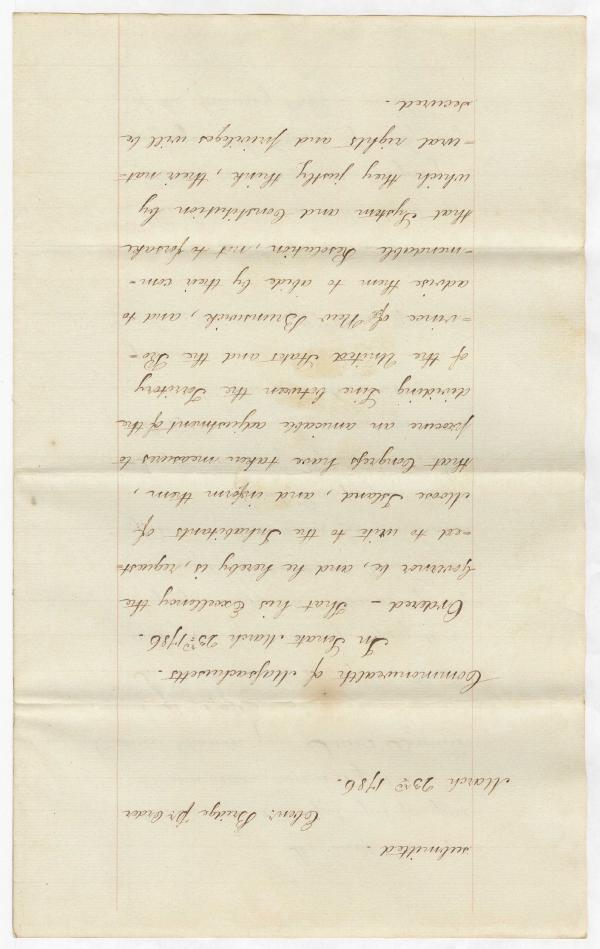 submitted.
Eben.r Bridge p.r Order
March 23.rd 1786.
Commonwealth of Massachusetts.
In Senate March 23.rd 1786.
Ordered – That his Excellency the
Governor be, and he hereby is, request=
=ed to write to the Inhabitants of
Moose Island, and inform them,
that Congress have taken measures to
procure an amicable adjustment of the
dividing Line between the Territory
of the United States and the Pro=
=vince of New Brunswick, and to
advise them to abide by their com=
=mendable Resolution, not to forsake
that System and Constitution by
which they justly think, their nat=
=ural rights and privileges will be
secured.